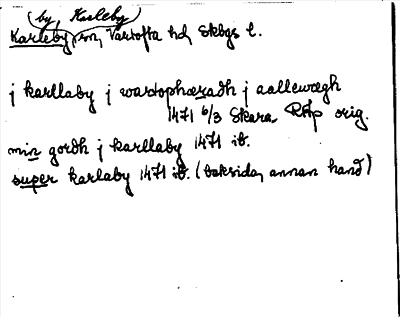 (by, Karleby)
Karleby, sn, Vartofta hd, Skbgs l.
j karllaby j wartophæradh j aallewægh
1471 6/3 Skara RAp orig.
min gordh j karllaby 1471 ib.
super karlaby 1471 ib. (baksida, annan hand)